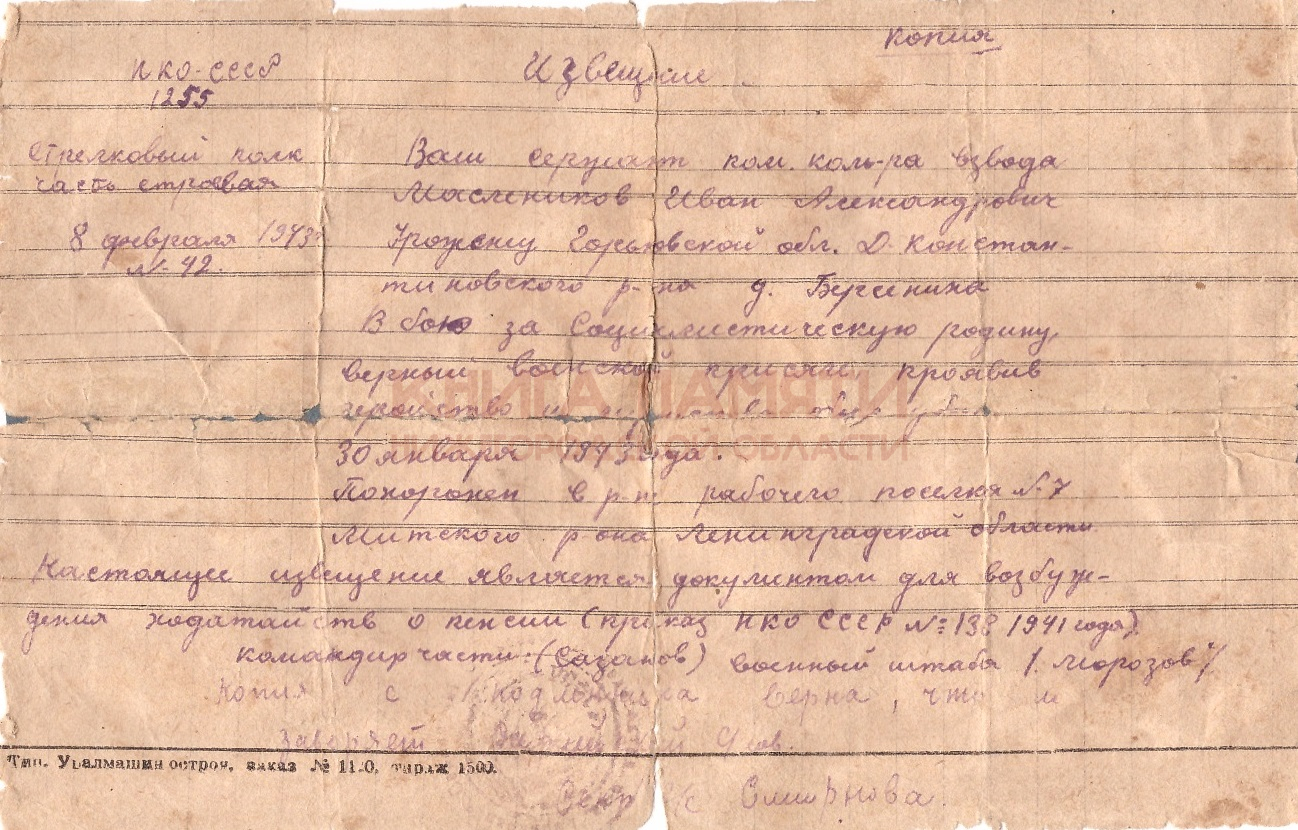 Копия
НКО-СССР
1255
Извещение
Стрелковый полк
часть строевая
8 февраля 1943г
№ 42.
Ваш сержант пом. ком-ра взвода
Маслеников Иван Александрович
Уроженец Горьковской обл. Д. Констан-
тиновского р-на д. Берсенина
В бою за Социалистическую родину,
верный воинской присяги, проявив
геройство
30 января 1943 года.
Похоронен в р-не рабочего поселка №7
Митского р-она Ленинградской области
Настоящее извещение является документом для возбуж-
дения ходатайств о пенсии (приказ НКО СССР №138 1941 года).
командир части (Сазанов) военный штаба /. Морозов/
Копия с подлинника верна, что и
заверяет
Секр с/с Смирнова.
Тип. Уралмашинострой, заказ № 1120, тираж 1500.
КНИГА ПАМЯТИ
НИЖЕГОРОДСКОЙ ОБЛАСТИ